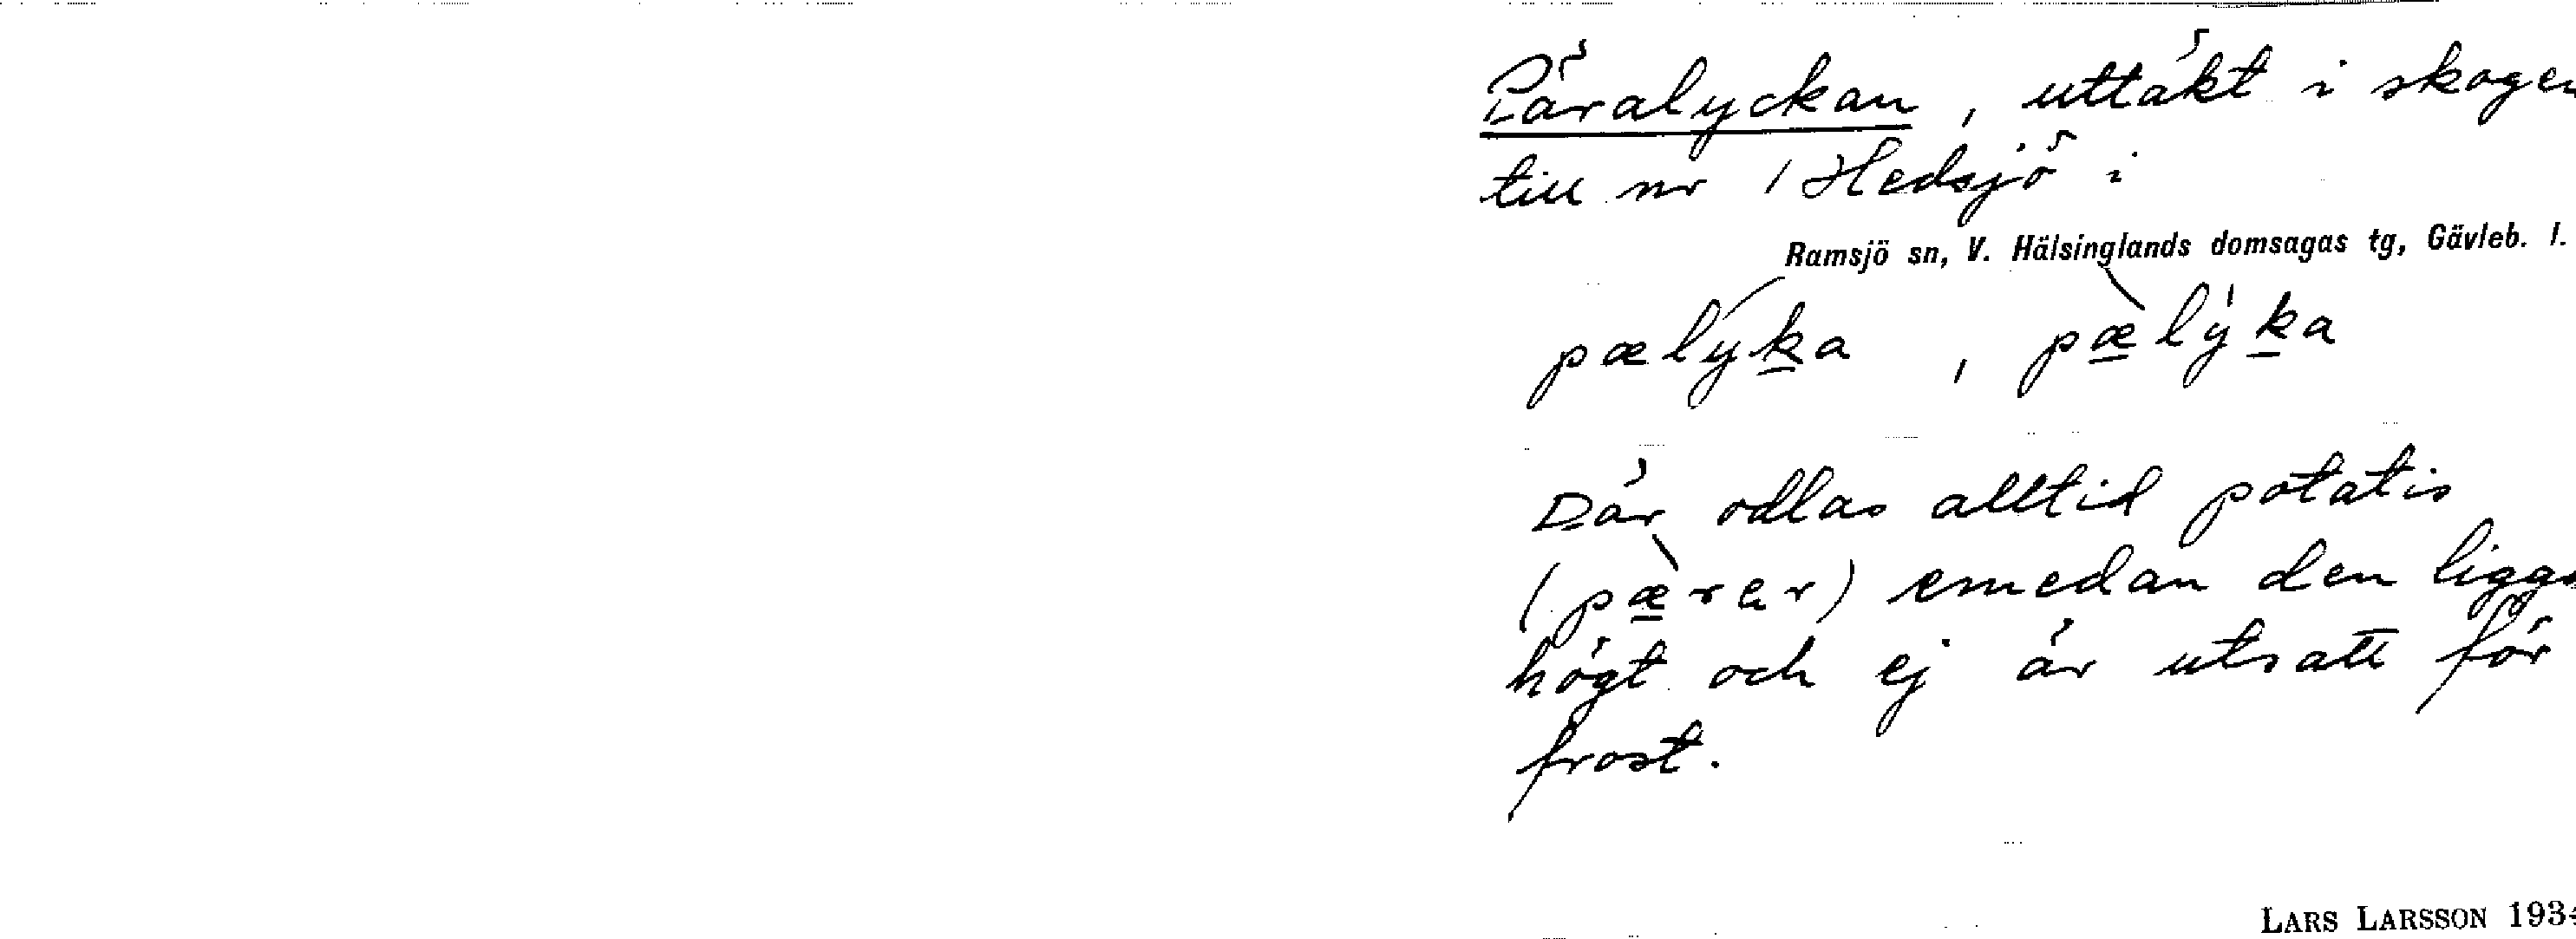 Päralyckan, uttäkt i skogen
till nr 1 Hedsjö i
Ramsjö sn, V. Hälsinglands domsagas tg, Gävleb. l.
pælyka , pæ̲lýka
Där odlas alltid potatis
(pæ̲rer) emedan den ligge
högt och ej är utsatt för
frost.
LARS LARSSON 193